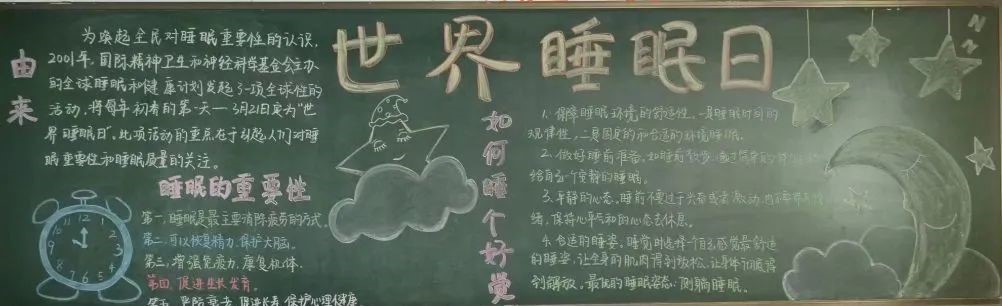 世界睡眠日
由来
为唤起全民对睡眠重要性的认识,
2001年,国际精神卫生和神经科学基金会主办
的全球睡眠和健康计划发起了一项全球性的
活动,将每年初春的第一天——3月21日定为“世
界睡眠日”,此项活动的重点在于引起人们对睡
眠重要性和睡眠质量的关注。
睡眠的重要性
第一,睡眠是最主要消除疲劳的方式
第二,可以恢复精力,保护大脑。
第三,增强免疫力,康复机体。
第四,促进生长发育。
保护心理健康
12
11
10
9
8
7
6
5
4
3
2
1
如何睡个好觉
1. 保障睡眠环境的舒适性,一是睡眠时间的
规律性,二是固定的和合适的环境睡眠。
2. 做好睡前准备,如睡前散步,通过简单的
给自己一个安静的睡眠。
3. 平静的心态,睡前不要过于兴奋或者激动,
绪,保持心平气和的心态去休息。
4. 合适的睡姿,睡觉时选择一个自己感觉最舒适
的睡姿,让全身的肌肉得到放松,让身体彻底得
到解放,最优的睡眠姿态:侧躺睡眠。
N
N
Z